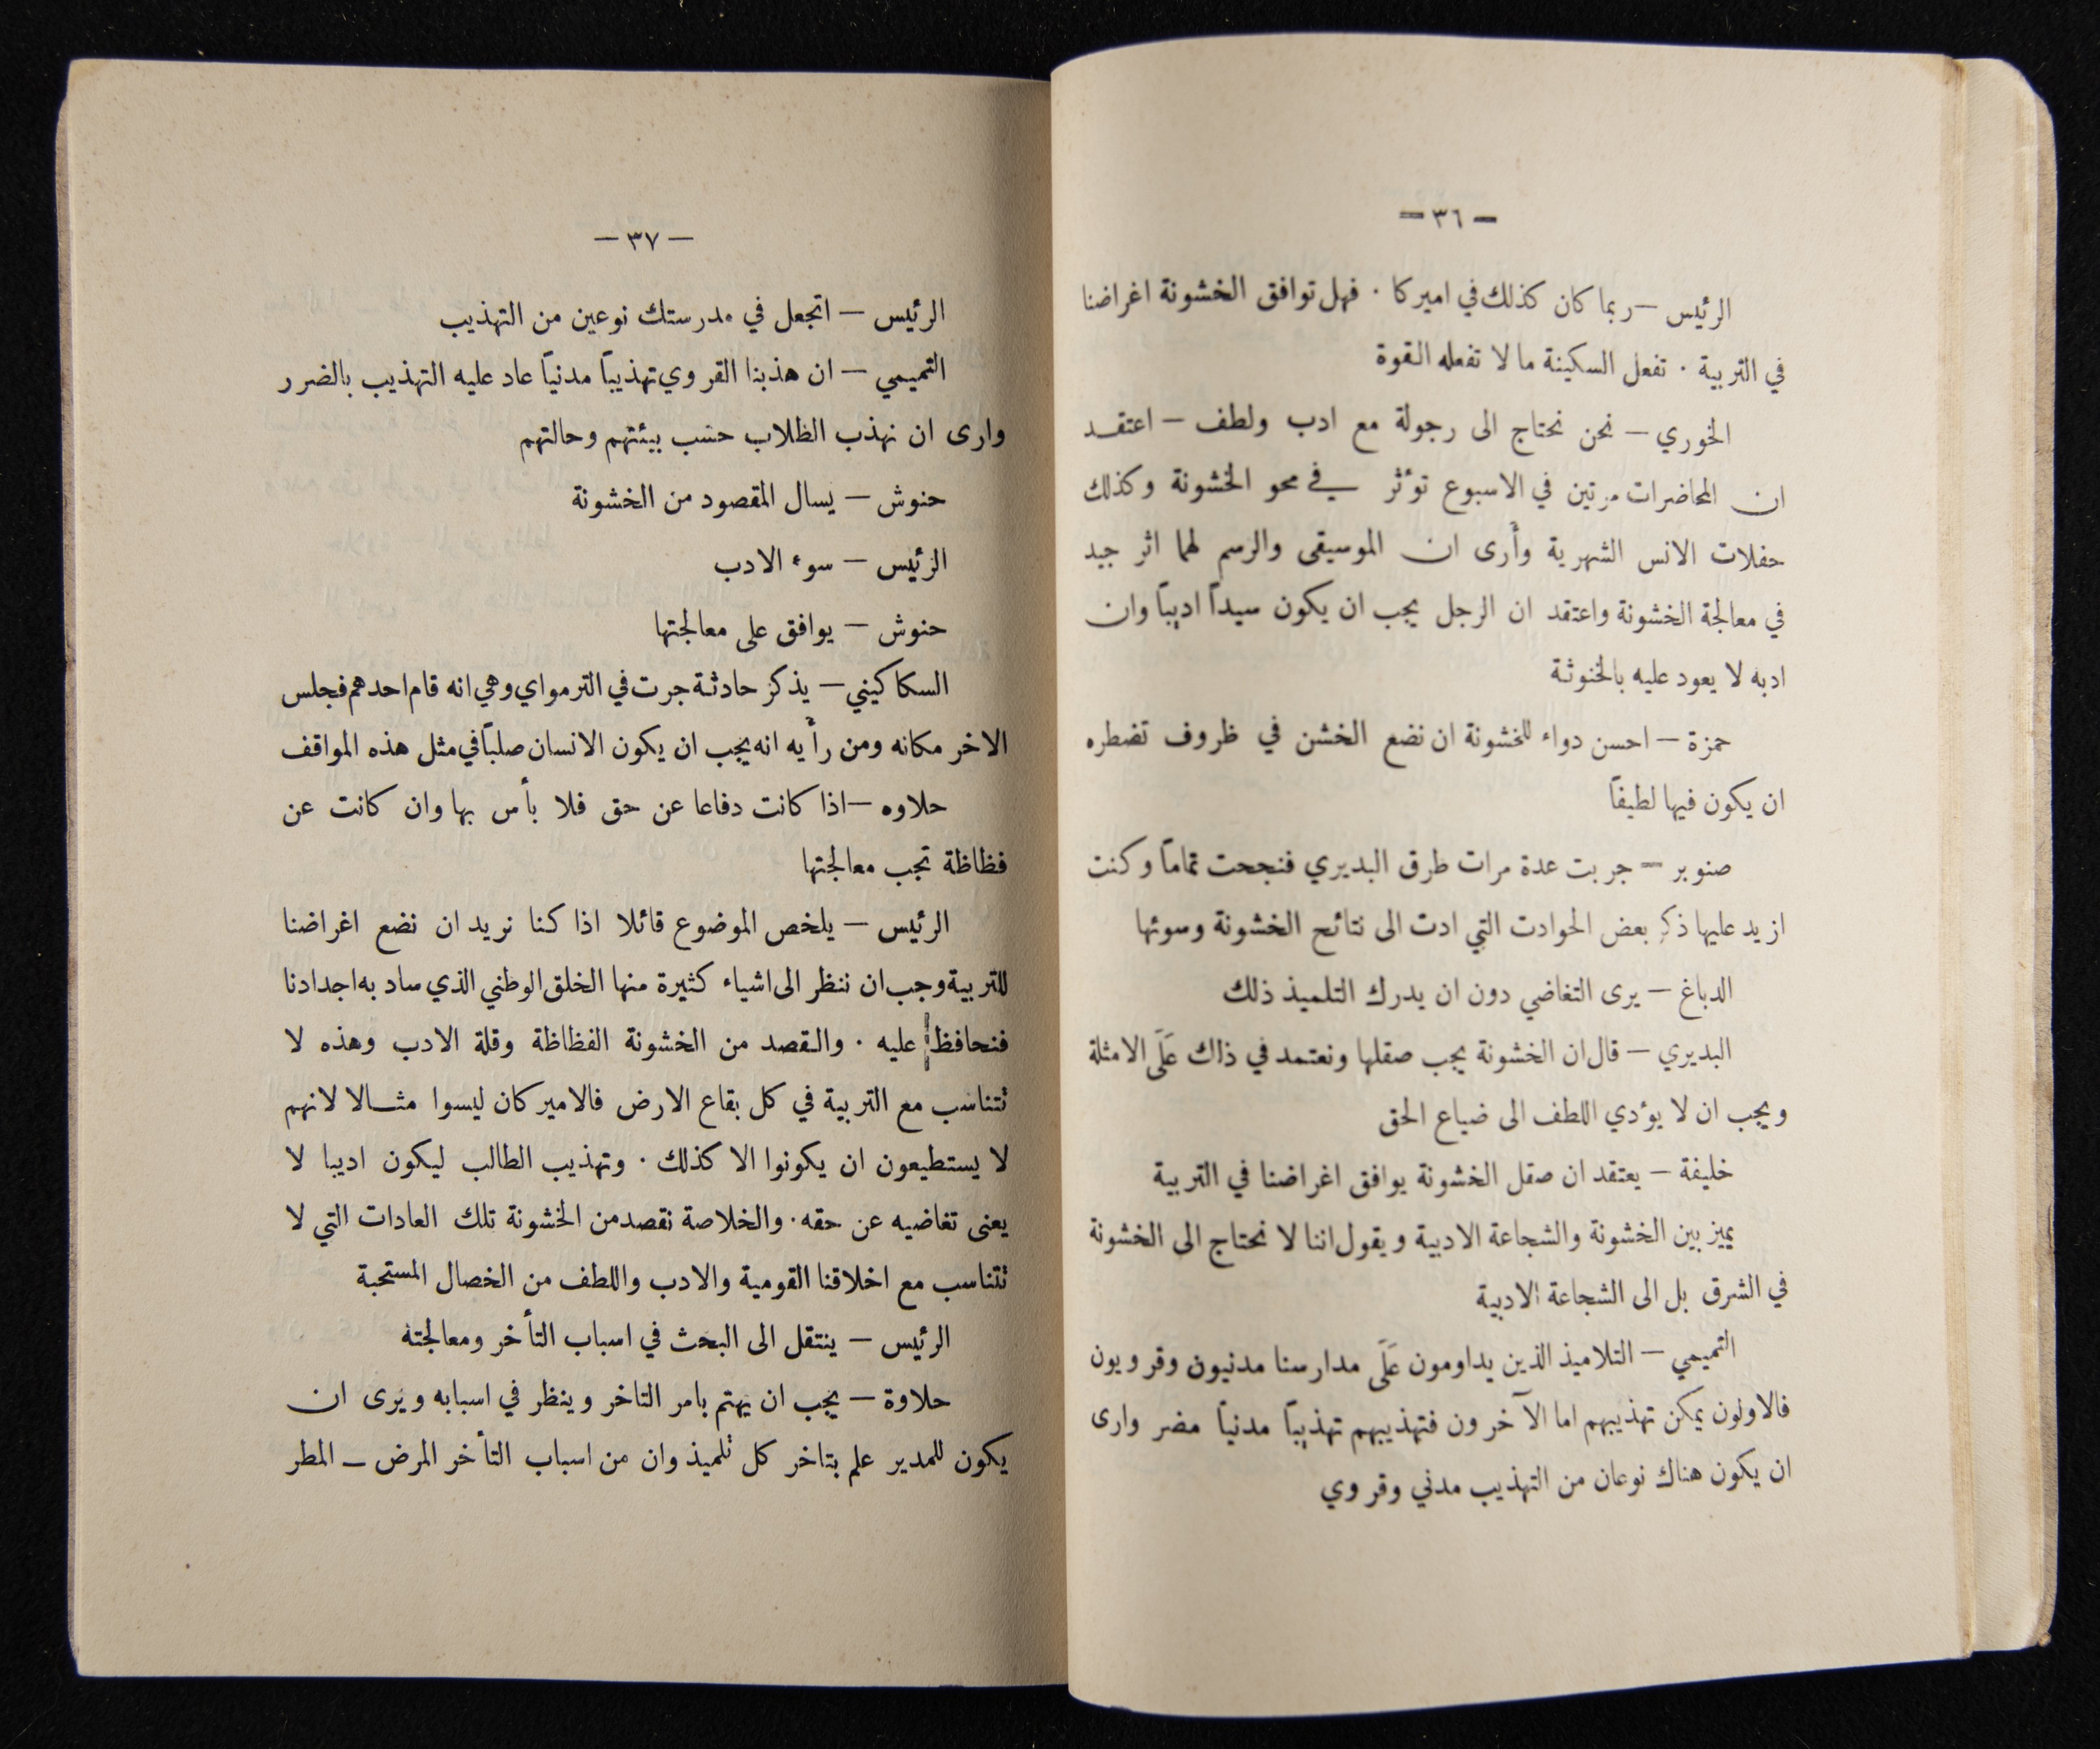 — ٣٦ —
الرئيس — ربما كان كذلك في اميركا . فهل توافق الخشونة اغراضنا
في التربية . تفعل السكينة ما لا تفعله القوة
الخوري — نحن نحتاج الى رجولة مع ادب ولطف — اعتقد
ان المحاضرات مرتين في الاسبوع تؤثر في محو الخشونة وكذلك
حفلات الانس الشهرية وأرى ان الموسيقى والرسم لهما اثر جيد
في معالجة الخشونة واعتقد ان الرجل يجب ان يكون سيداً اديباً وان
ادبه لا يعود عليه بالخنوثة
حمزة — احسن دواء للخشونة ان نضع الخشن في ظروف تضطره
ان يكون فيها لطيفاً
صنوبر — جربت عدة مرات طرق البديري فنجحت تماماً وكنت
ازيد عليها ذكر بعض الحوادت التي ادت الى نتائح الخشونة وسوئها
الدباغ — يرى التغاضي دون ان يدرك التلميذ ذلك
البديري — قال ان الخشونة يجب صقلها ونعتمد في ذاك عَلَى الامثلة
ويجب ان لا يؤدي اللطف الى ضياع الحق
خليفة — يعتقد ان صقل الخشونة يوافق اغراضنا في التربية
يميز بين الخشونة والشجاعة الادبية ويقول اننا لا نحتاج الى الخشونة
في الشرق بل الى الشجاعة الادبية
التميمي — التلاميذ الذين يداومون عَلَى مدارسنا مدنيون وقرويون
فالاولون يمكن تهذيبهم اما الآخرون فتهذيبهم تهذيباً مدنياً مضر وارى
ان يكون هناك نوعان من التهذيب مدني وقروي
— ٣٧ —
الرئيس — اتجعل في مدرستك نوعين من التهذيب
التميمي — ان هذبنا القروي تهذيباً مدنياً عاد عليه التهذيب بالضرر
وارى ان نهذب الطلاب حسب بيئتهم وحالتهم
حنوش — يسال المقصود من الخشونة
الرئيس — سوء الادب
حنوش — يوافق على معالجتها
السكاكيني — يذكر حادثة جرت في الترمواي وهي انه قام احدهم فجلس
الاخر مكانه ومن رأيه انه يجب ان يكون الانسان صلباً في مثل هذه المواقف
حلاوه — اذا كانت دفاعا عن حق فلا بأس بها وان كانت عن
فظاظة تجب معالجتها
الرئيس — يلخص الموضوع قائلا اذا كنا نريد ان نضع اغراضنا
للتربية وجب ان ننظر الى اشياء كثيرة منها الخلق الوطني الذي ساد به اجدادنا
فنحافظ عليه . والقصد من الخشونة الفظاظة وقلة الادب وهذه لا
تتناسب مع التربية في كل بقاع الارض فالاميركان ليسوا مثالا لانهم
لا يستطيعون ان يكونوا الا كذلك . وتهذيب الطالب ليكون اديبا لا
يعنى تغاضيه عن حقه . والخلاصة نقصد من الخشونة تلك العادات التي لا
تتناسب مع اخلاقنا القومية والادب واللطف من الخصال المستحبة
الرئيس — ينتقل الى البحث في اسباب التأخر ومعالجته
حلاوة — يجب ان يهتم بامر التاخر وينظر في اسبابه ويرى ان
يكون للمدير علم بتاخر كل تلميذ وان من اسباب التأخر المرض — المطر